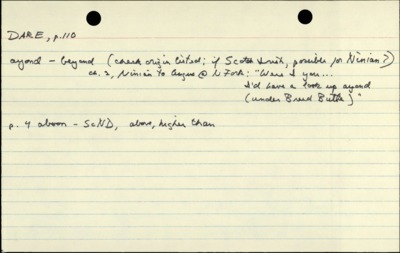 DARE, p.110
ayond - beyond (check origin listed; if Scotch-Irish, possible for Ninian?)
ch. 2, Ninian to Angus @ N Fork: "Were I you...
I'd have a look up ayond
(under Breed Butte)"
p. 4 aboon - ScND, above, higher than